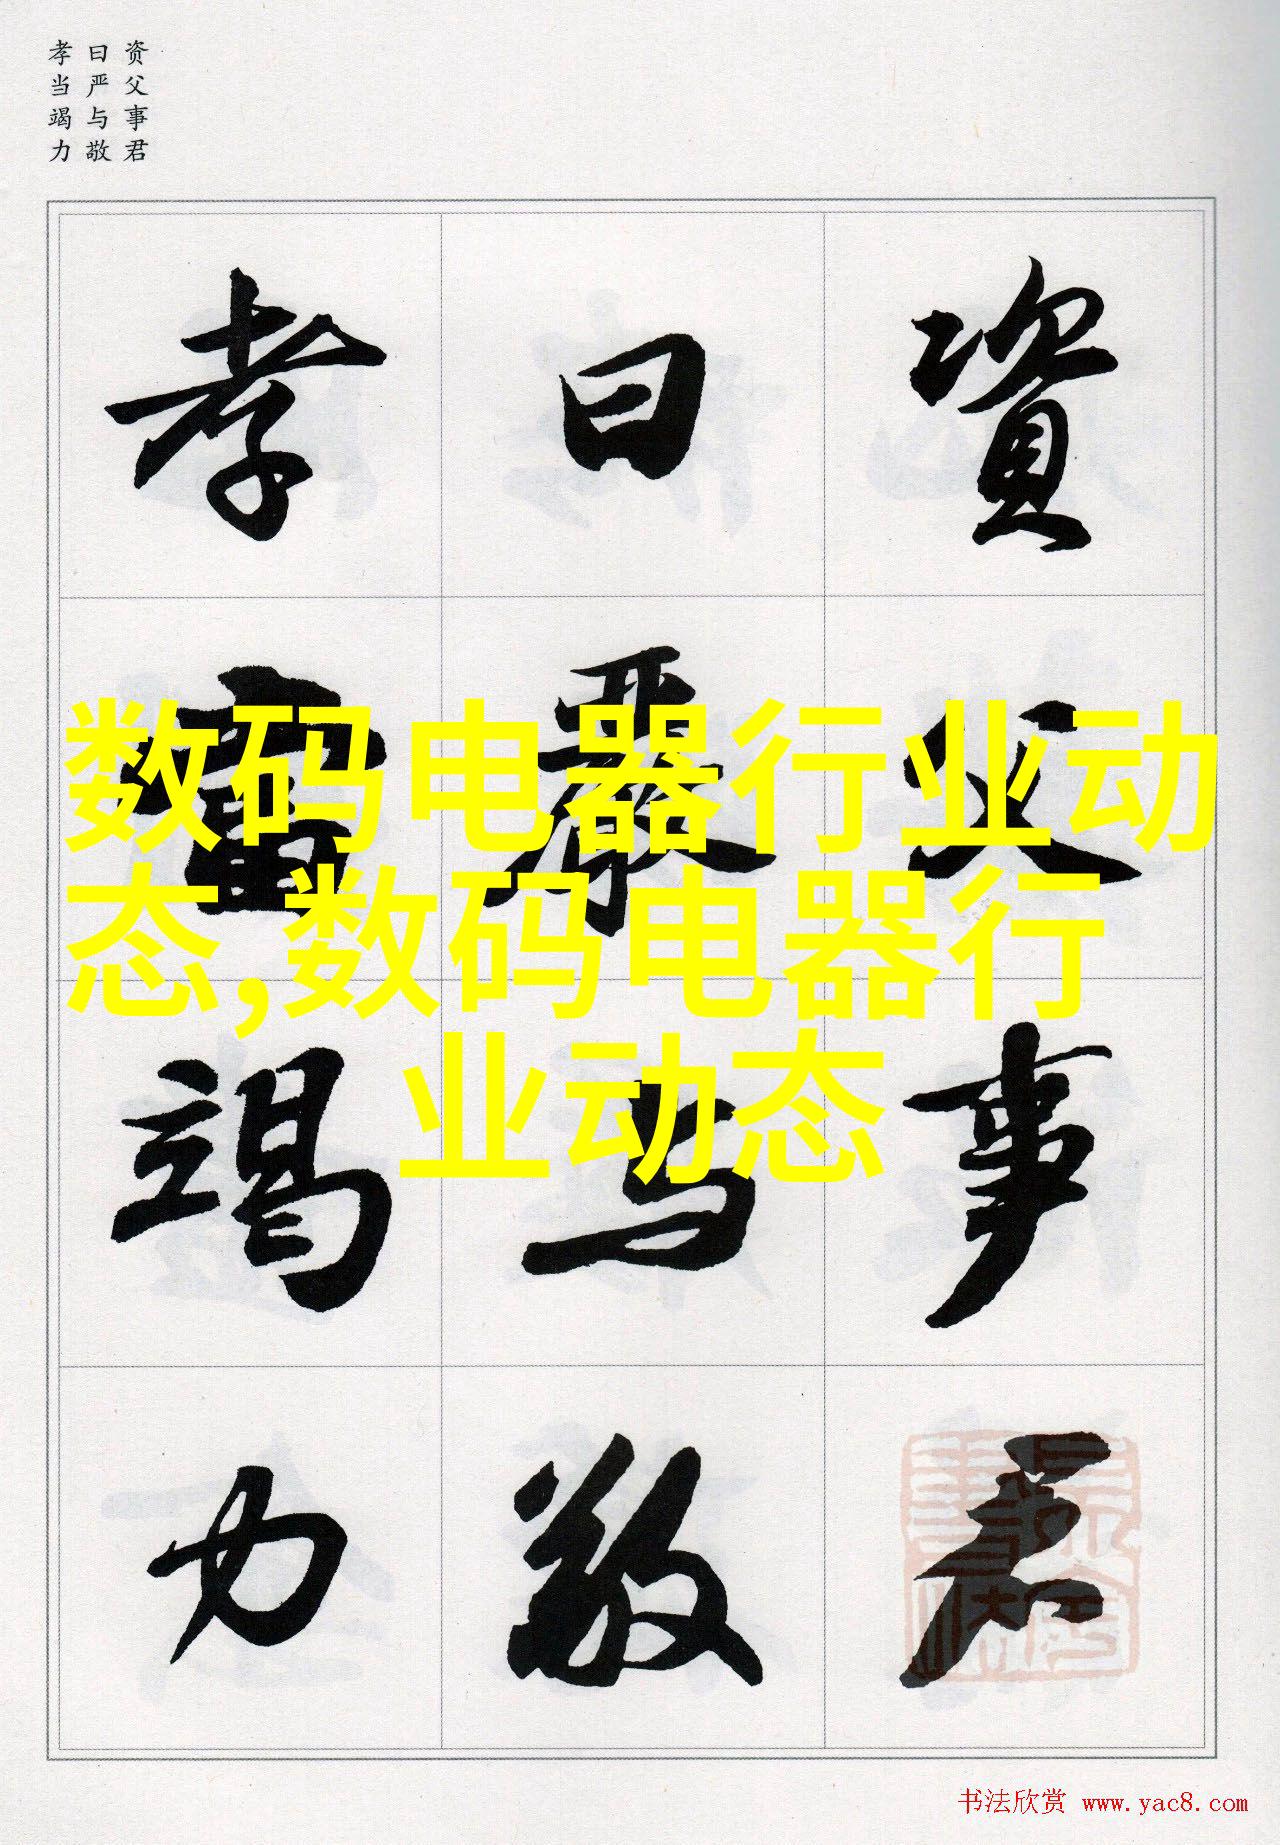 资父事君
曰严与敬
孝当竭力
資父事君
曰嚴与敬
孝當竭力
数码电器行业动
态,数码电器行
业动态
书法欣赏 www.yac8.com